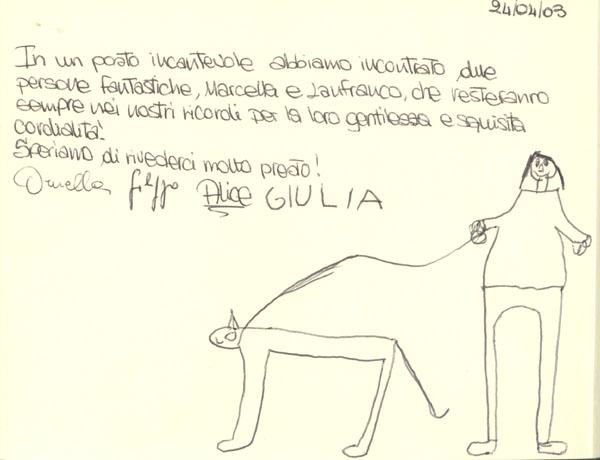 24/04/03
In un posto incantevole abbiamo incontrato due
persone fantastiche, Marcella e Lanfranco, che resteranno
sempre nei nostri ricordi per la loro gentilessa e squisita
cordialità.
Speriamo di rivederci molto presto!
Ornella Filippo Alice GIULIA